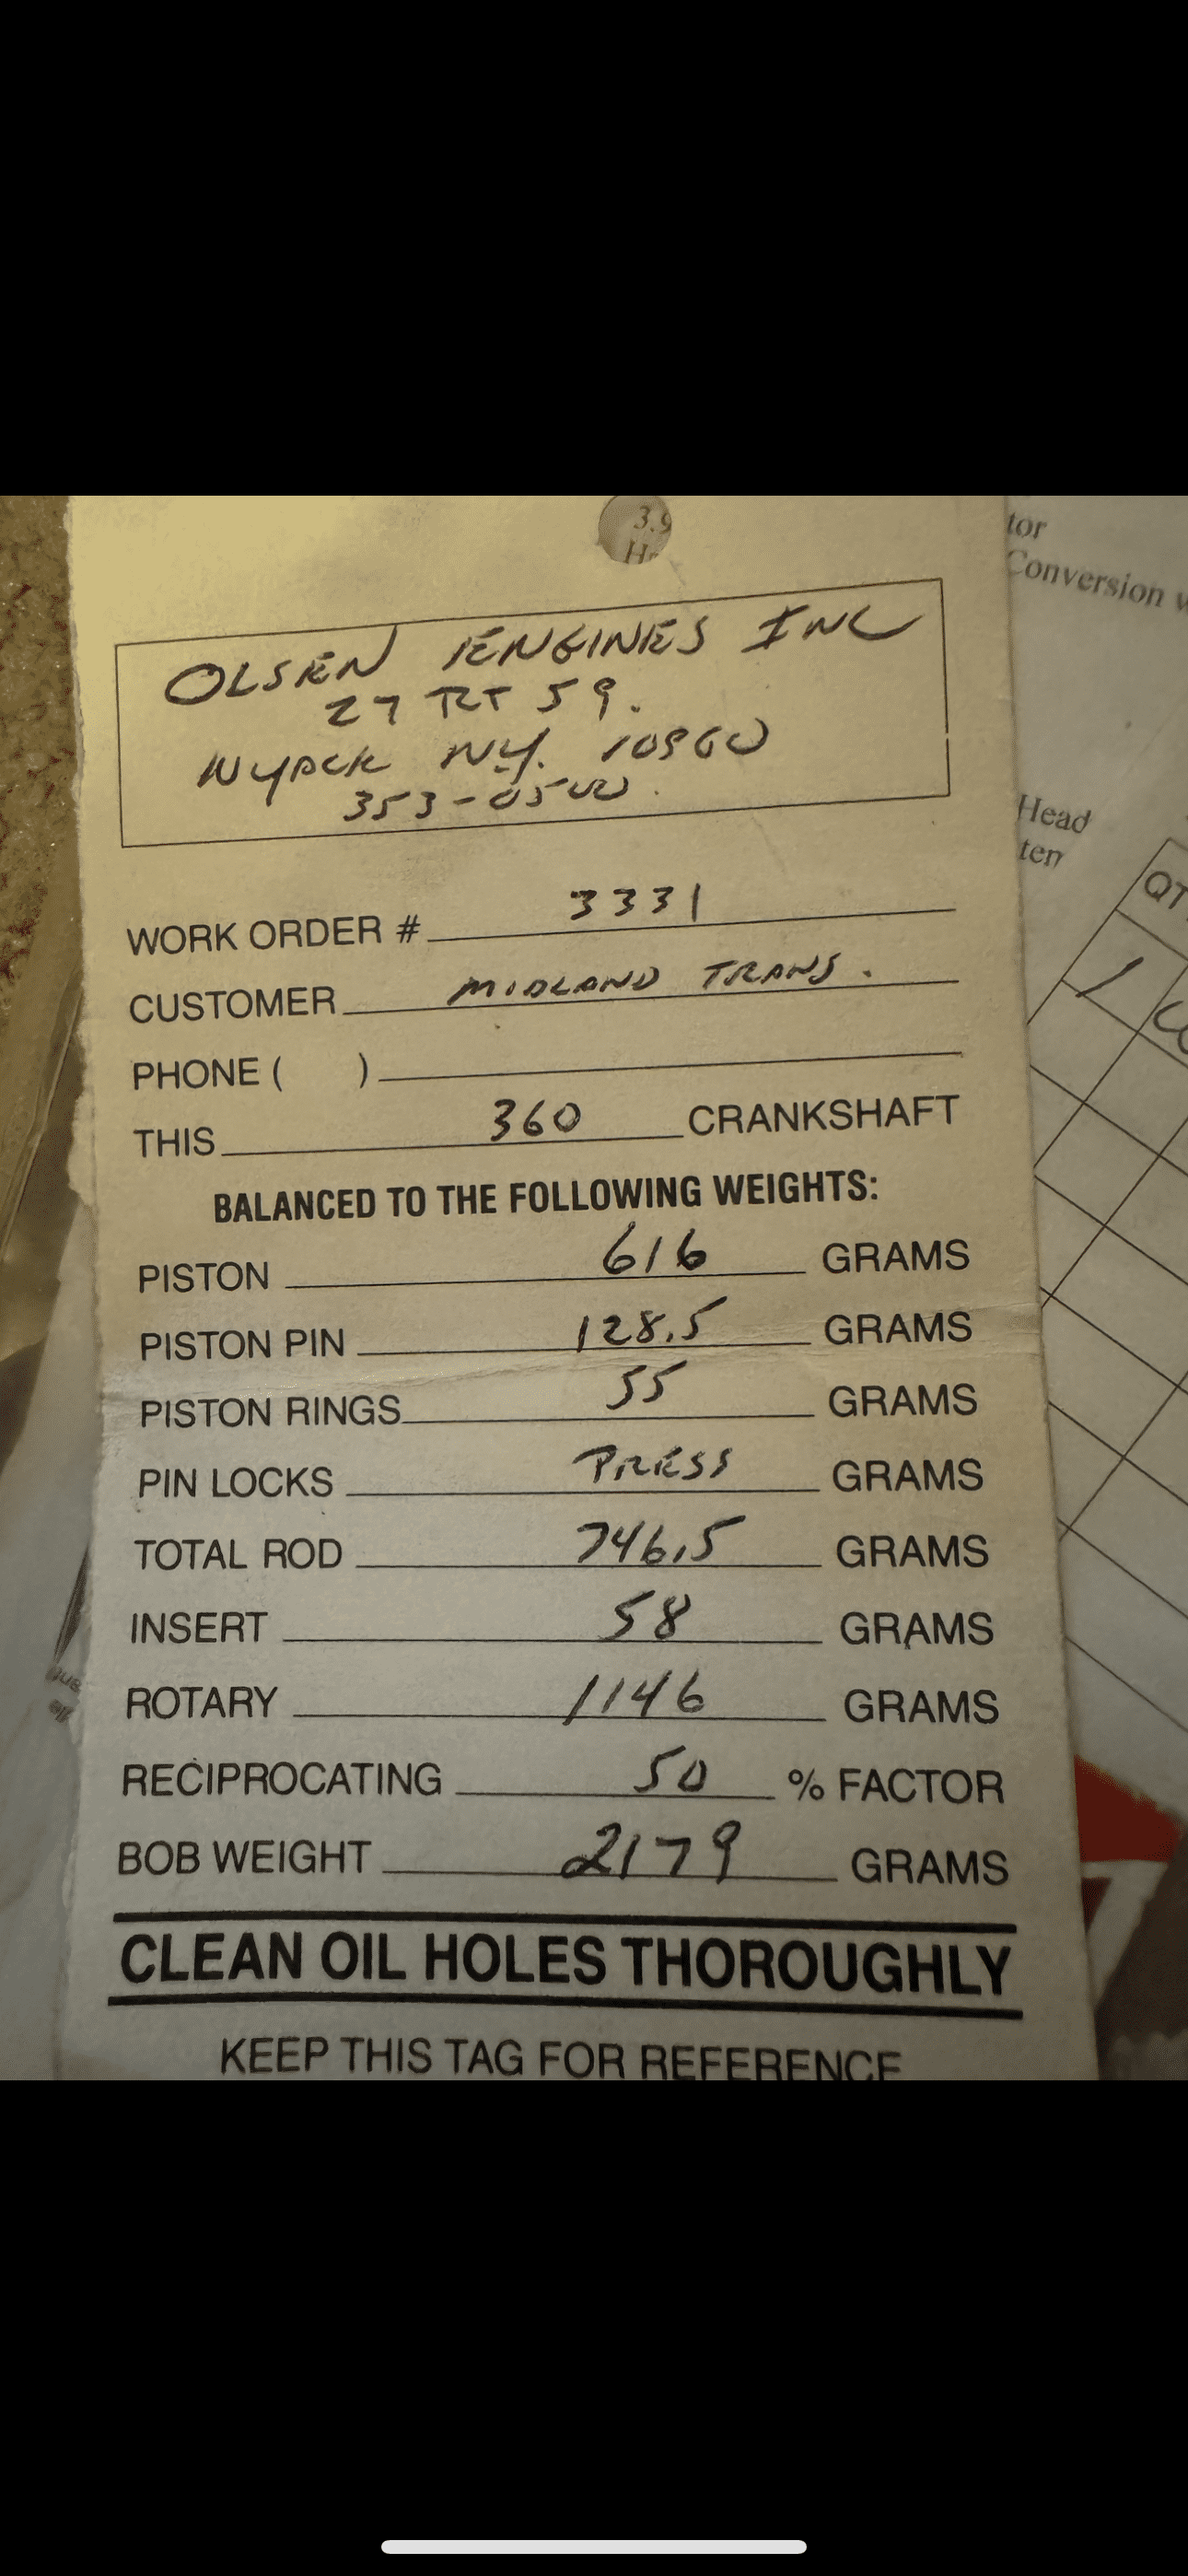 3.9
H
tor
Conversion w
OLSEN ENGINES INC
27 RT 59.
NYACK NY. 10960
353-0500.
Head
ten
QT
1
WORK ORDER # 3331
CUSTOMER MIDLAND TRANS.
PHONE ( )
THIS 360 CRANKSHAFT
BALANCED TO THE FOLLOWING WEIGHTS:
PISTON 616 GRAMS
PISTON PIN 128.5 GRAMS
PISTON RINGS 55 GRAMS
PIN LOCKS PRESS GRAMS
TOTAL ROD 746.5 GRAMS
INSERT 58 GRAMS
ROTARY 1146 GRAMS
RECIPROCATING 50 % FACTOR
BOB WEIGHT 2179 GRAMS
CLEAN OIL HOLES THOROUGHLY
KEEP THIS TAG FOR REFERENCE